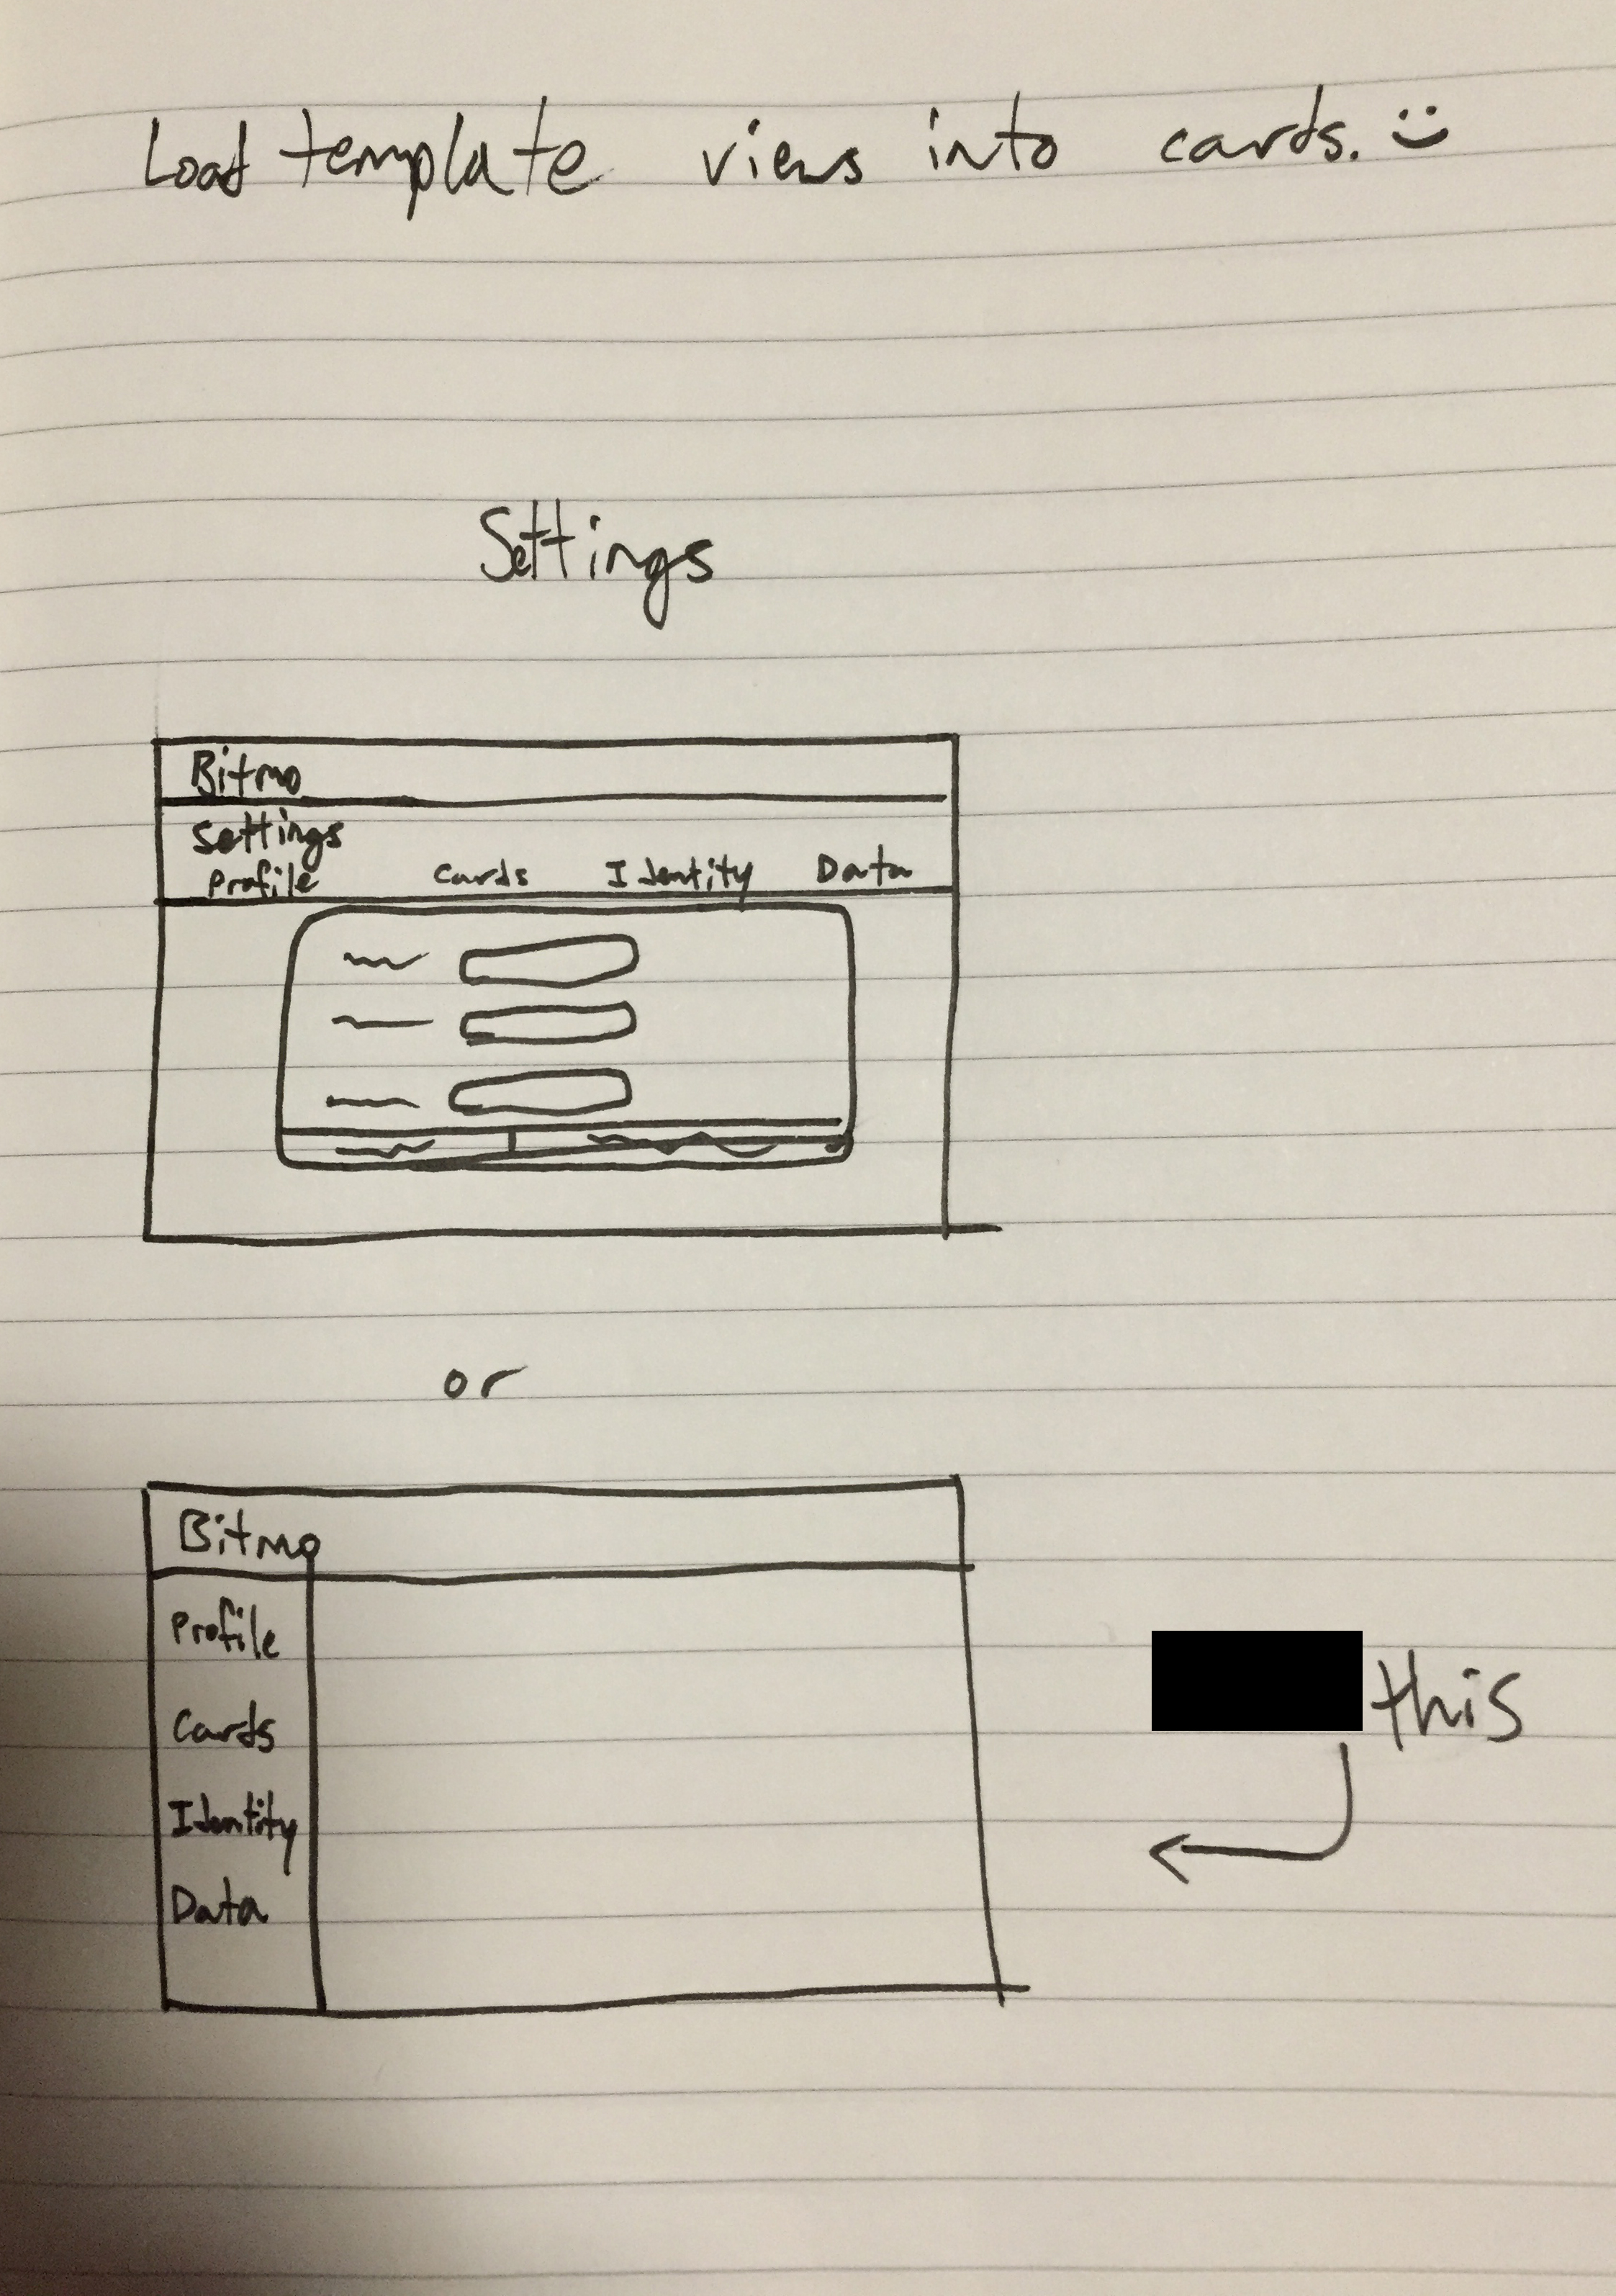 Load template views into cards.
Settings
Bitmo
Settings
Profile Cards Identity Data
or
Bitmo
Profile
Cards
Identity
Data
this